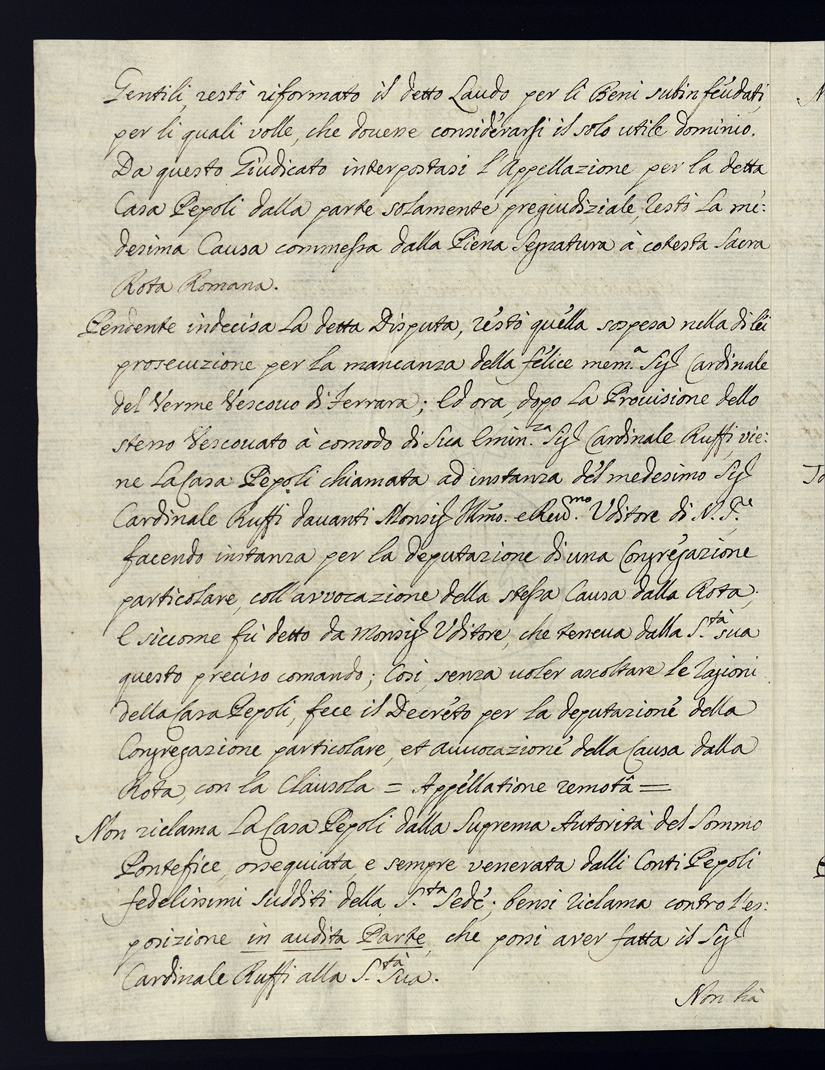 Gentili, restò riformato il detto Laudo per li Beni subinfeudati,
per li quali volle, che dovesse considerarsi il solo utile dominio.
Da questo Giudicato interpostasi l'Appellazione per la detta
Casa Pepoli dalla parte solamente pregiudiziale, restò La me:
desima Causa commessa dalla Piena Segnatura à cotesta Sacra
Rota Romana.
Pendente indecisa La detta Disputa, restò quella sospesa nella di lei
prosecuzione per la mancanza della felice mem.ª Sig.r Cardinale
del Verme Vescovo di Ferrara; Ed ora, dopo La Provisione dello
stesso Vescovato à comodo di Sua Emin.za Sig.r Cardinale Ruffi, vie:
ne La Casa Pepoli chiamata ad instanza del medesimo Sig.r
Cardinale Ruffi davanti Monsig.r Illmo. e Rev.mo Uditore di N. S.e
facendo instanza per la deputazione di una Congregazione
particolare, coll'avvocazione della stessa Causa dalla Rota;
E siccome fù detto da Monsig.r Uditore, che teneva dalla S.tà sua
questo preciso comando; Così, senza voler ascoltare le ragioni
della Casa Pepoli, fece il Decreto per la deputazione della
Congregazione particolare, et avvocazione della Causa dalla
Rota, con la Clausola = Appellatione remotâ =
Non riclama La Casa Pepoli dalla Suprema Autorità del Sommo
Pontefice, ossequiata, e sempre venerata dalli Conti Pepoli
fedelissimi sudditi della S.ta Sede; bensi riclama contro l'es:
posizione in audita Parte, che possi aver fatta il Sig.r
Cardinale Ruffi alla S.tà Sua.
Non hà